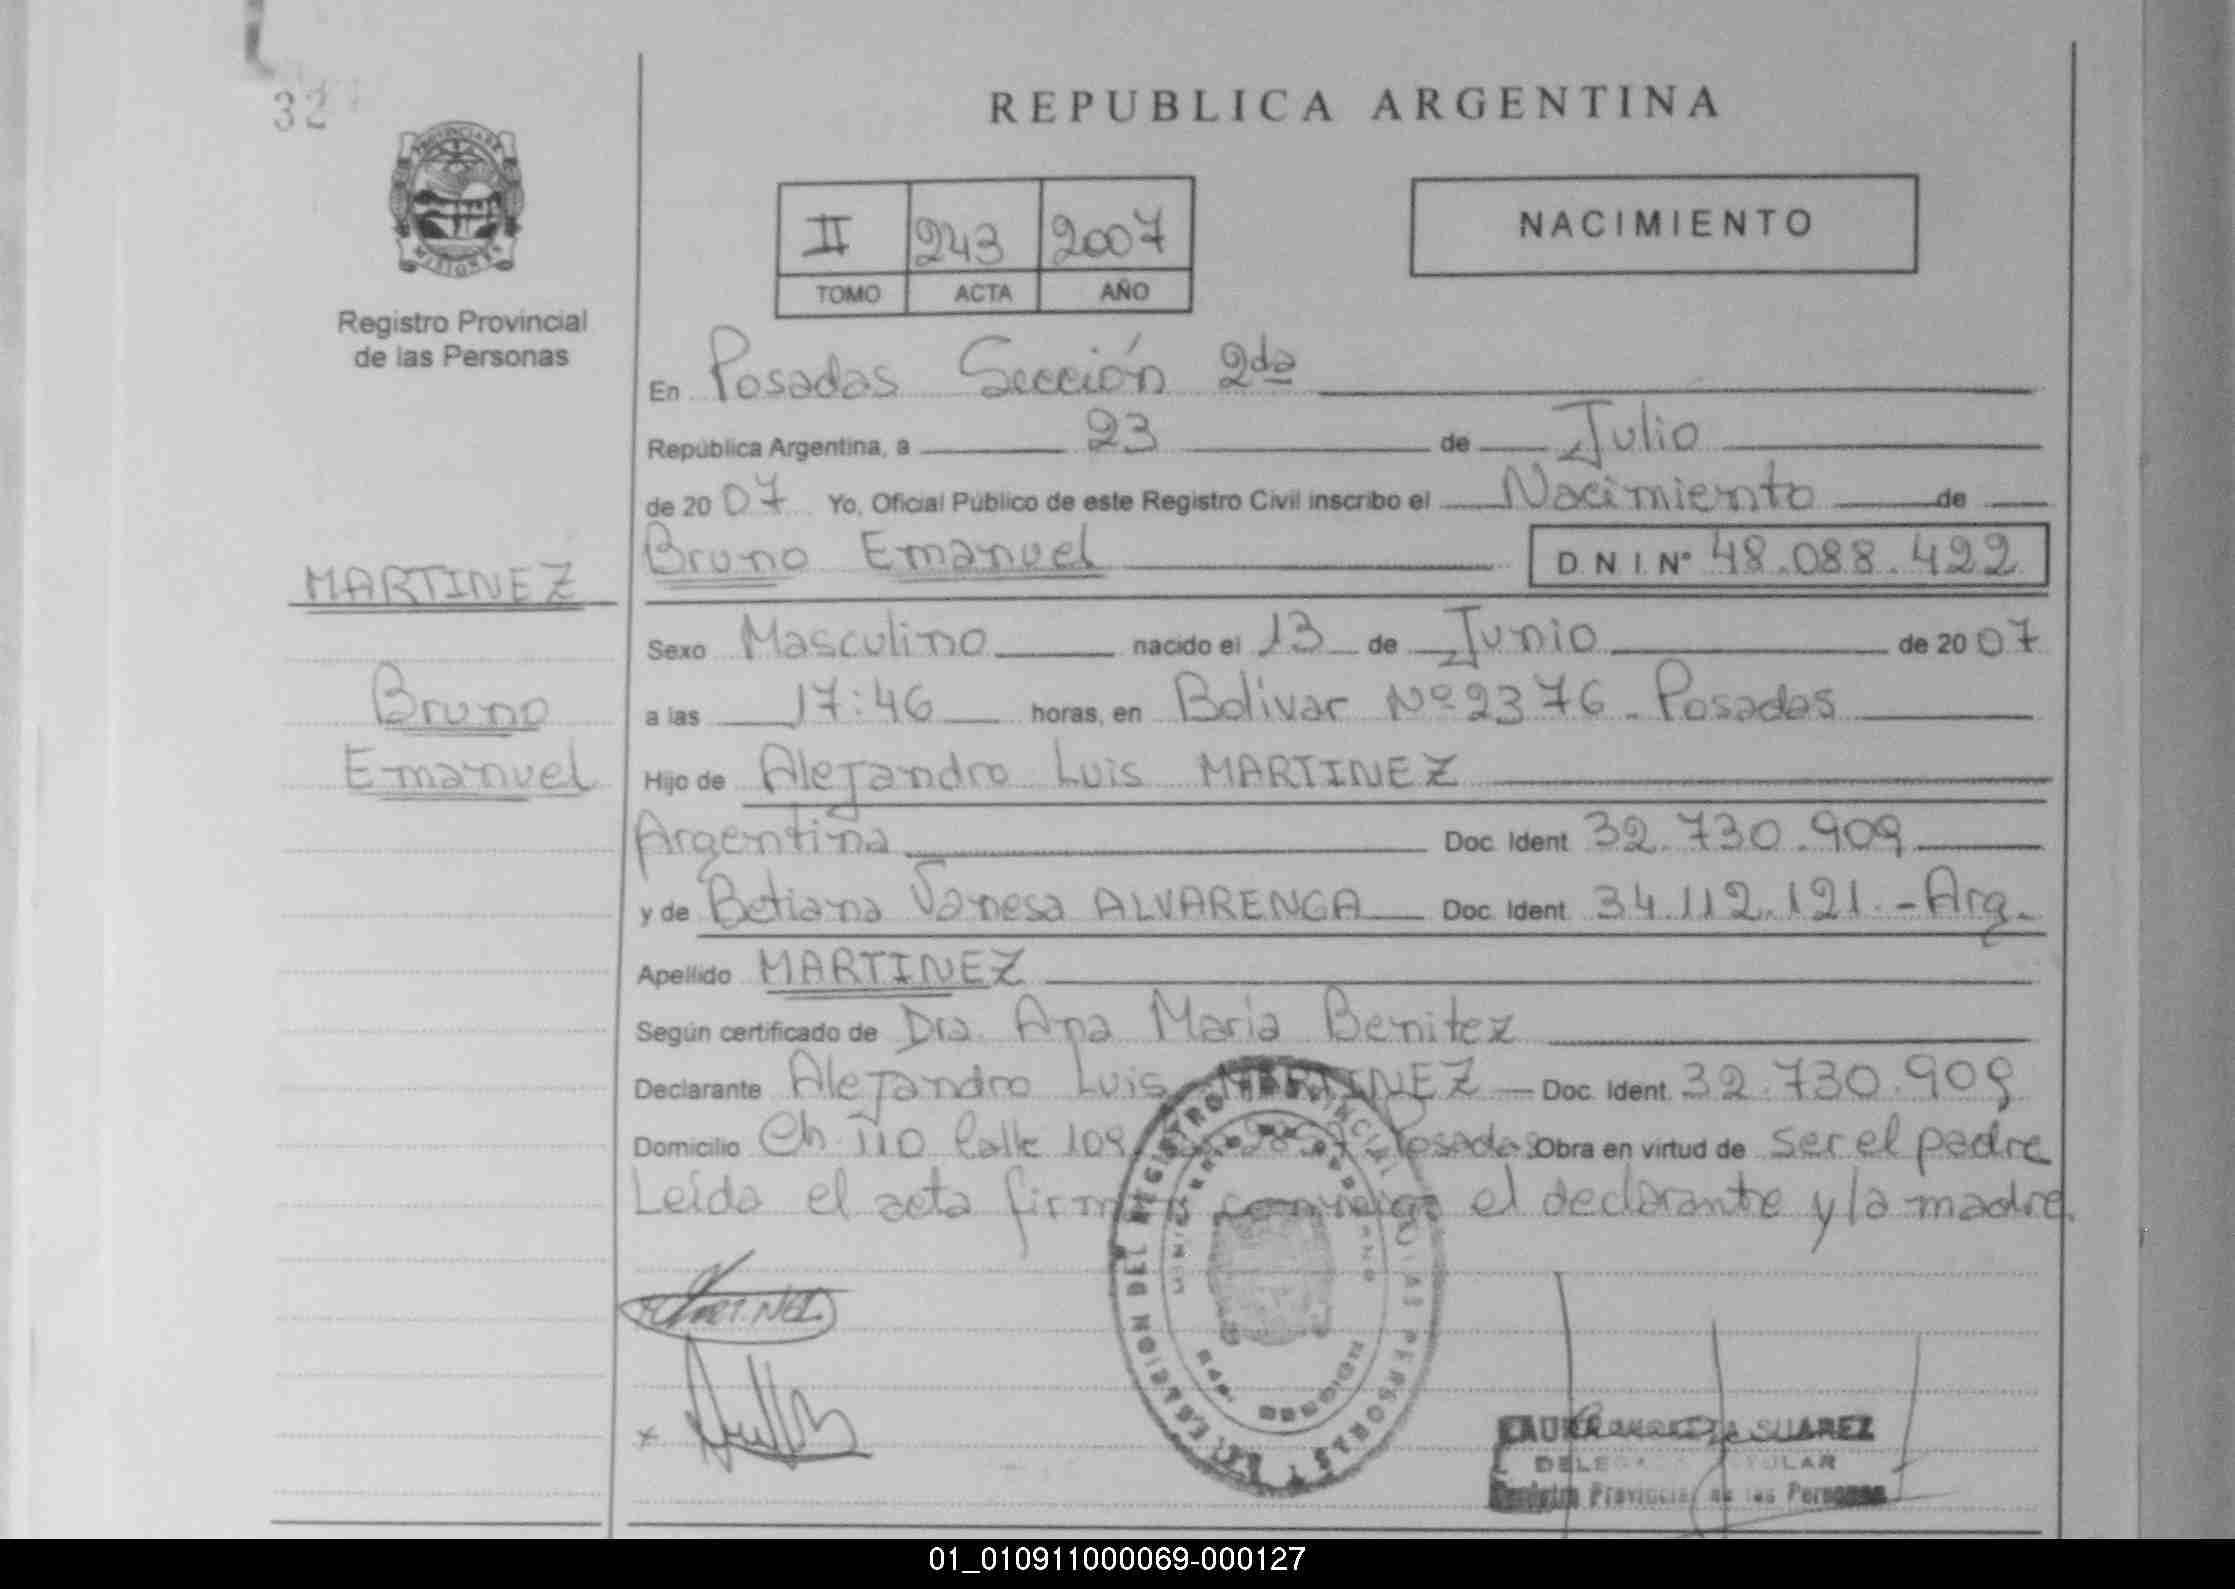 32
REPUBLICA ARGENTINA
PROVINCIA DE
MISIONES
Registro Provincial
de las Personas
II 243 2007
TOMO ACTA AÑO
NACIMIENTO
En Posadas Sección 2da
República Argentina, a 23 de Julio
de 2007 Yo, Oficial Público de este Registro Civil inscribo el Nacimiento de
Bruno Emanuel D.N.I. Nº 48.088.422
MARTINEZ
Bruno
Emanuel
Sexo Masculino nacido el 13 de Junio de 2007
a las 17:46 horas, en Bolivar Nº 2376 - Posadas
Hijo de Alejandro Luis MARTINEZ
Argentina Doc. Ident. 32.730.909
y de Betiana Vanesa ALVARENGA Doc. Ident. 34.112.121.- Arg.
Apellido MARTINEZ
Según certificado de Dra. Ana María Benitez
Declarante Alejandro Luis MARTINEZ Doc. Ident. 32.730.909
Domicilio Ch. 110 Calle 109 Posadas Obra en virtud de ser el padre
Leída el acta firman conmigo el declarante y la madre.
MARTINEZ
REGISTRO PROVINCIAL DE LAS PERSONAS
MISIONES
SUAREZ
Registro Provincial de las Personas
01_010911000069-000127